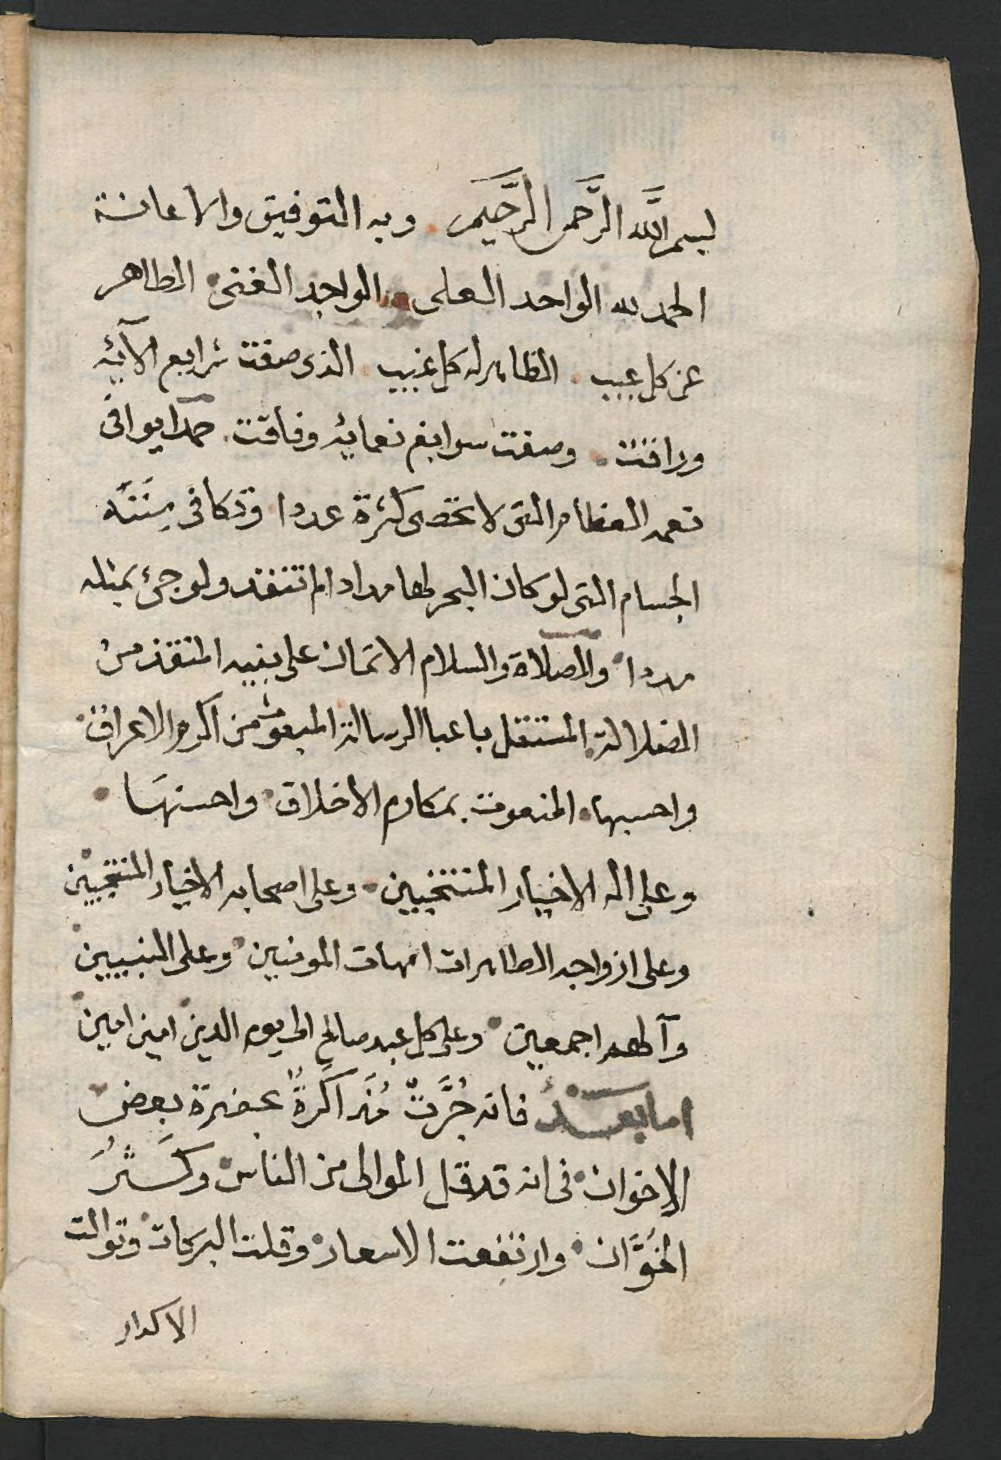 بسم اللّه الرَّحمن الرَّحيم وبه التوفيق والاعانة
الحمد لله الواحد العلى الواجد الغنى الطاهر
عن كل عيب الظاهر له كل غيب الذى صفت شرايع الآيه
وراقت وضفت سوابغ نعمايه وفاقت حمدا يوافى
نعمه العظام التى لا تحصى كثرة عددا وتكافى مننه
الجسام التى لو كان البحر لها مدادا لم تنفد ولو جئ بمثله
مددا والصلاة والسلام الاتمان على نبيه المنقذ من
الضلالة المستقل باعبا الرسالة المبعوث من اكرم الاعراق
واحسبها المنعوت بمكارم الاخلاق واحسنها
وعلى اله الاخيار المنتخبين وعلى اصحابه الاخيار المنتجبين
وعلى ازواجه الطاهرات امهات المومنين وعلى النبيين
وآلهم اجمعين وعلى كل عبد صالح الى يوم الدين امين امين
اما بعد فانه جُرَّتْ مُذَاكَرةٌ بحضرة بعض
الاخوان فى انه قد قل الموالى من الناس وكَثُرَ
الخُوَّان وارتفعت الاسعار وقلت البركات وتوالت
الاكدار